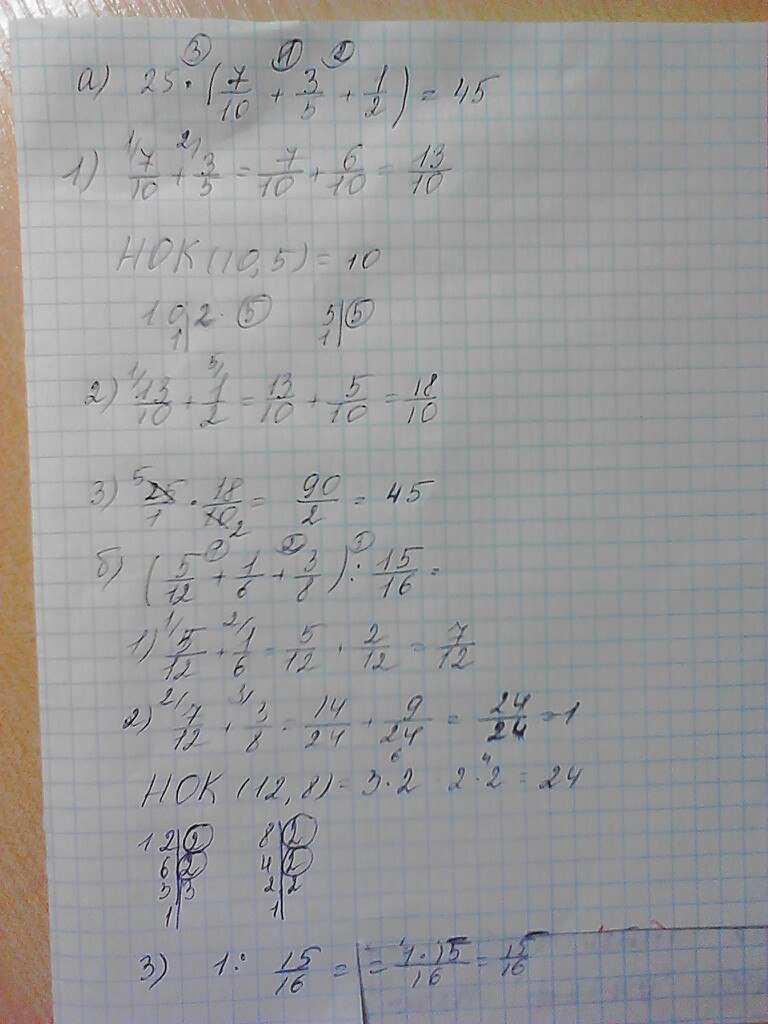 а) 25 · (7/10 + 3/5 + 1/2) = 45
1) 7/10 + 3/5 = 7/10 + 6/10 = 13/10
НОК (10, 5) = 10
10 | 2 · 5    5 | 5
1 |    1 |
2) 13/10 + 1/2 = 13/10 + 5/10 = 18/10
3) 25/1 · 18/10 = 90/2 = 45
б) (5/12 + 1/6 + 3/8) : 15/16 =
1) 5/12 + 1/6 = 5/12 + 2/12 = 7/12
2) 7/12 + 3/8 = 14/24 + 9/24 = 24/24 = 1
НОК (12, 8) = 3 · 2 · 2 · 2 = 24
12 | 2    8 | 2
6 | 2    4 | 2
3 | 3    2 | 2
1 |    1 |
3) 1 : 15/16 = = 1 · 15/16 = 15/16